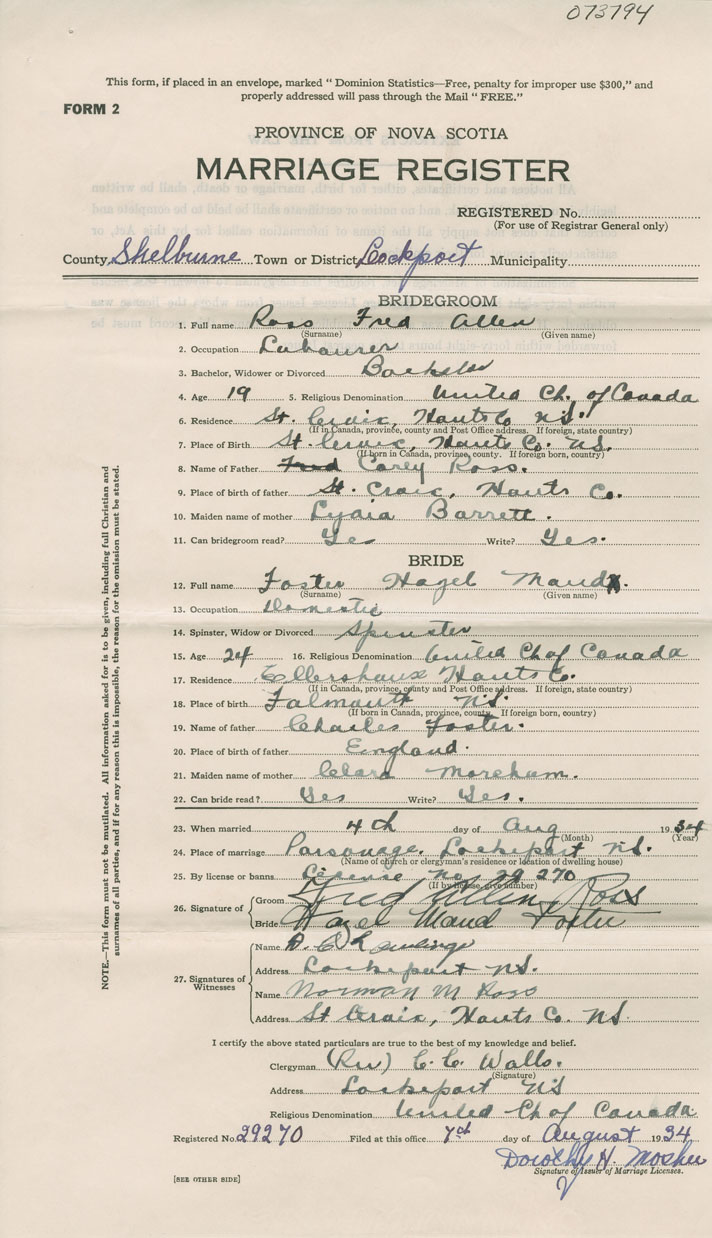 073794
This form, if placed in an envelope, marked “ Dominion Statistics—Free, penalty for improper use $300,” and
properly addressed will pass through the Mail “ FREE.”
FORM 2
PROVINCE OF NOVA SCOTIA
MARRIAGE REGISTER
REGISTERED No.
(For use of Registrar General only)
County Shelburne Town or District Lockport Municipality
BRIDEGROOM
1. Full name Ross Fred Allen
(Surname) (Given name)
2. Occupation Labourer
3. Bachelor, Widower or Divorced Bachelor
4. Age 19 5. Religious Denomination United Ch. of Canada
6. Residence St. Croix, Hants Co N.S.
(If in Canada, province, county and Post Office address. If foreign, state country)
7. Place of Birth St. Croix, Hants Co. N.S.
(If born in Canada, province, county. If foreign born, country)
8. Name of Father Fred Carey Ross.
9. Place of birth of father St. Croix, Hants Co.
10. Maiden name of mother Lydia Barrett.
11. Can bridegroom read? Yes Write? Yes.
BRIDE
12. Full name Foster Hazel Maud.
(Surname) (Given name)
13. Occupation Domestic
14. Spinster, Widow or Divorced Spinster
15. Age 24 16. Religious Denomination United Ch of Canada
17. Residence Ellershaus Hants Co.
(If in Canada, province, county and Post Office address. If foreign, state country)
18. Place of birth Falmouth N.S.
(If born in Canada, province, county. If foreign born, country)
19. Name of father Charles Foster.
20. Place of birth of father England.
21. Maiden name of mother Clara Moreham.
22. Can bride read? Yes Write? Yes.
23. When married 4th day of Aug 1934
(Month) (Year)
24. Place of marriage Parsonage. Lockeport N.S.
(Name of church or clergyman's residence or location of dwelling house)
25. By license or banns License No. 29270
(If by license, give number)
26. Signature of Groom Fred Allen Ross
Bride Hazel Maud Foster
27. Signatures of Witnesses
Name
Address Lockeport N.S.
Name Norman M Ross
Address St Croix, Hants Co. N.S.
I certify the above stated particulars are true to the best of my knowledge and belief.
Clergyman (Rev) C. C. Walls.
(Signature)
Address Lockeport N.S
Religious Denomination United Ch of Canada
Registered No. 29270 Filed at this office 7th day of August 1934
Dorothy H. Mosher
Signature of Issuer of Marriage Licenses.
[SEE OTHER SIDE]
NOTE.—This form must not be mutilated. All information asked for is to be given, including full Christian and
surnames of all parties, and if for any reason this is impossible, the reason for the omission must be stated.